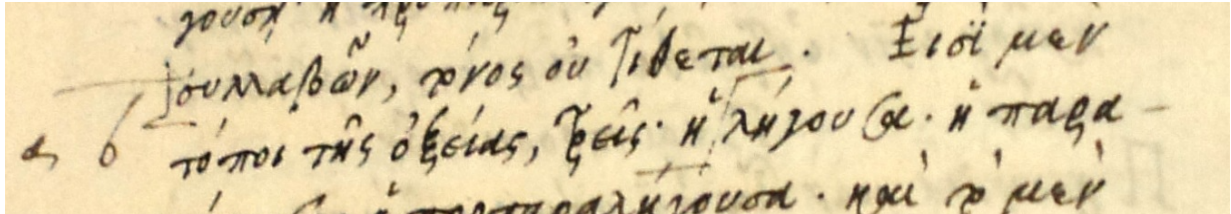 συλλαβῶν, τόνος οὐ τίθεται. Εἰσὶ μὲν
τόποι τῆς ὀξείας, τρεῖς· ἡ λήγουσα· ἡ παρα-
προπαραλήγουσα· καὶ ὁ μὲν